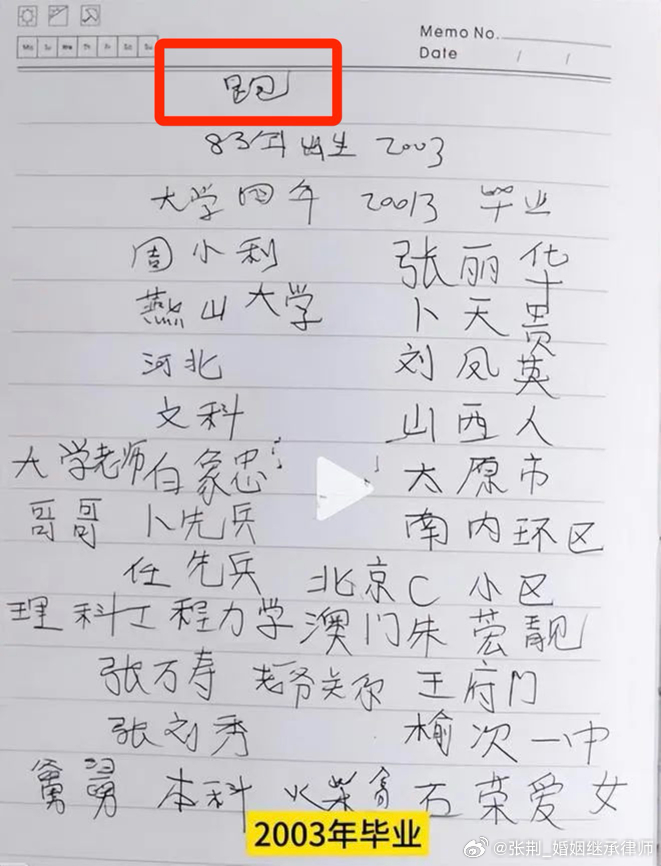 Memo No.
Mo Tu We Th Fr Sa Su
Date / /
83年出生 2003
大学四年 20013 毕业
周小利 张丽华
燕山大学 卜天贵
河北 刘凤英
文科 山西人
大学老师白象忠 太原市
哥哥 卜先兵 南内环区
任先兵 北京C小区
理科工程力学澳门朱芸靓
张万寿 老爷关系 王府门
张刘秀 榆次一中
舅舅 本科 火柴 石荣爱女
2003年毕业
@张荆_婚姻继承律师